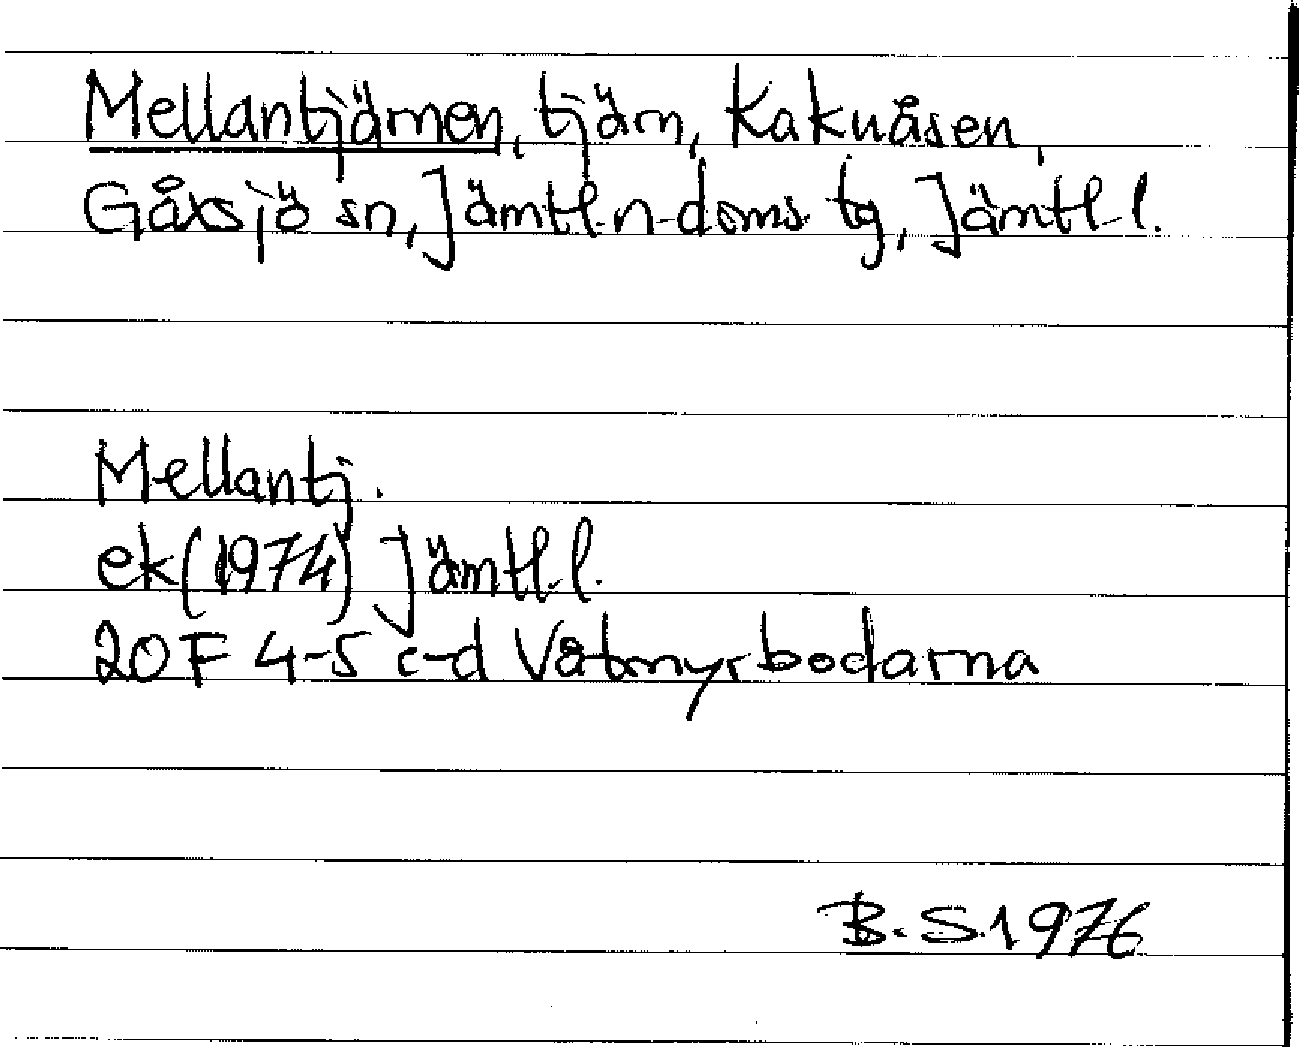 Mellantjärnen, tjärn, Kakuåsen,
Gåxsjö sn, Jämtl.n-doms. tg, Jämtl.l.
Mellantj.
ek(1974) Jämtl.l.
20F 4-5 c-d Våtmyrbodarna
B.S.1976